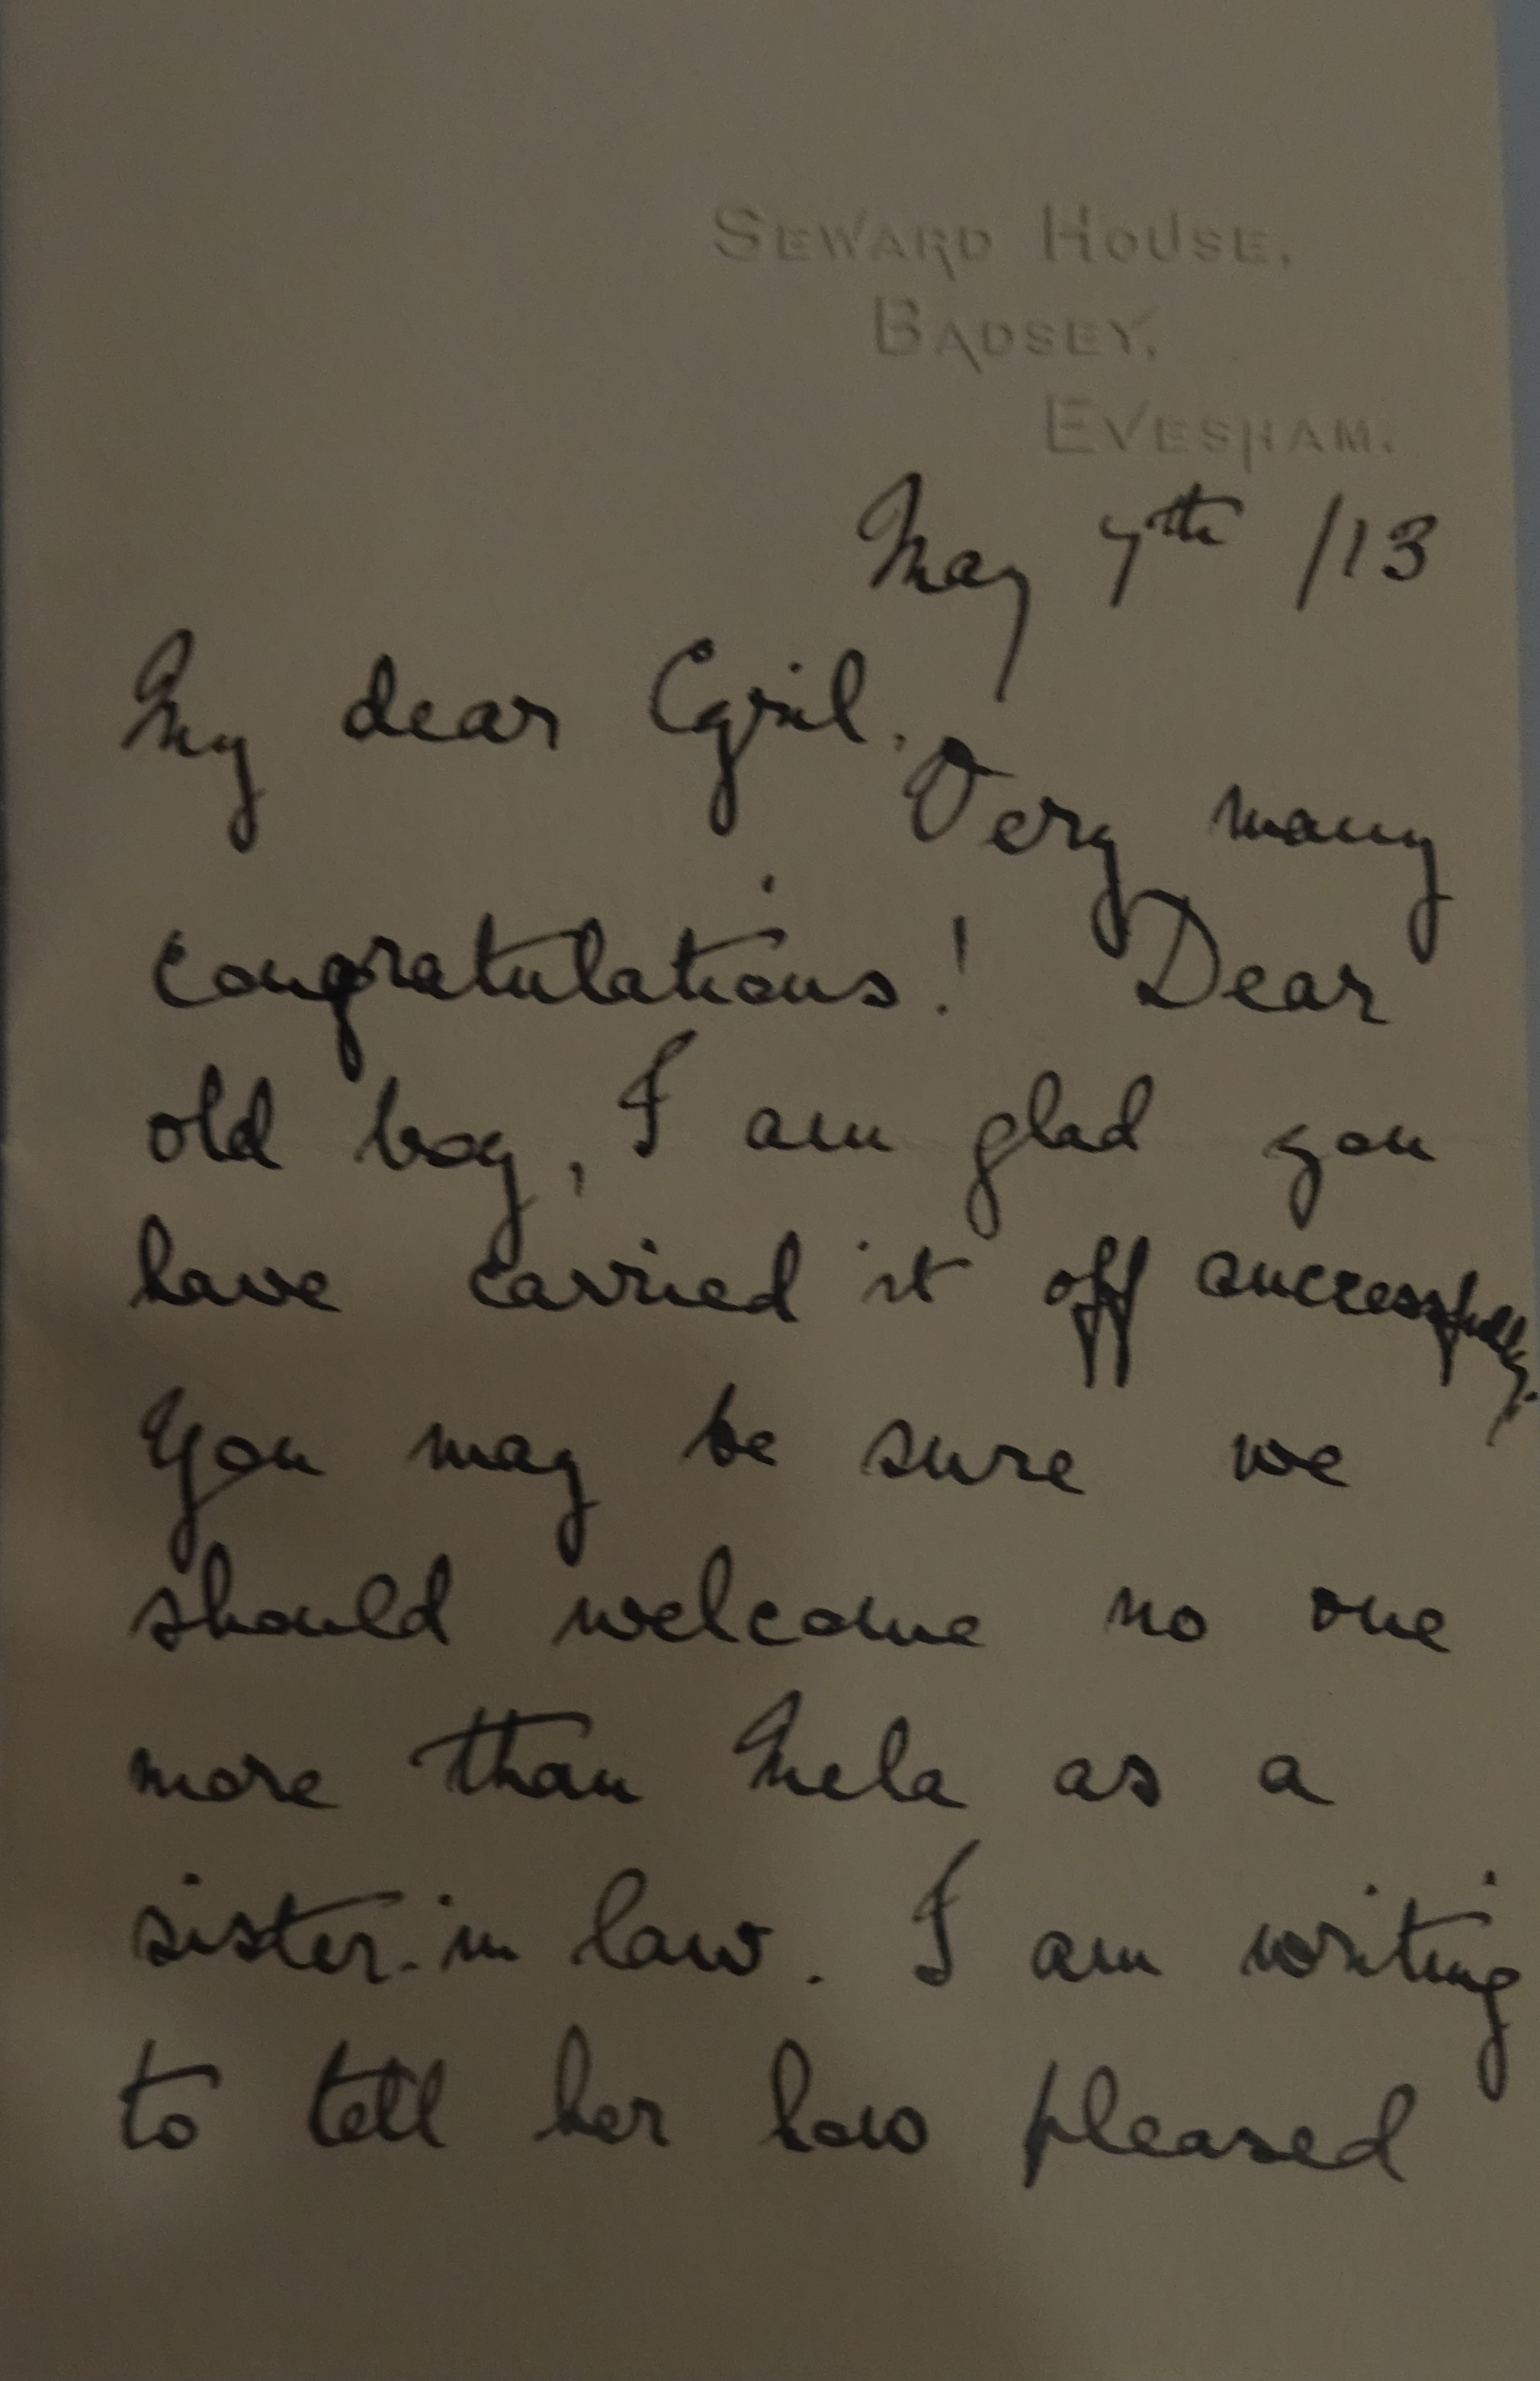 SEWARD HOUSE,
BADSEY,
EVESHAM.
May 7th /13
My dear Cyril,
Very many
congratulations! Dear
old boy, I am glad you
have carried it off successfully.
You may be sure we
should welcome no one
more than Mela as a
sister-in law. I am writing
to tell her how pleased